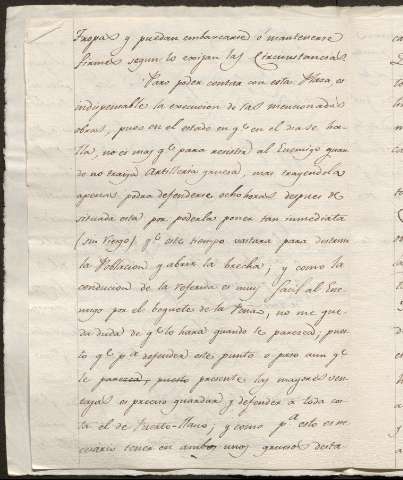 Tropas y puedan embarcarse ó mantenerse
firmes segun lo exijan las Circunstancias.
Para poder contar con esta Plaza, es
indispensable la execucion de las mencionadas
obras, pues en el estado en q.e en el dia se ha-
lla, no es mas q.e para resistir al Enemigo quan-
do no traiga Artilleria gruesa, mas trayendola
apenas podra defenderse ocho horas despues de
situada esta por poderla poner tan inmediata
(sin riesgo) q.e este tiempo vastara para
la Poblacion y abrir la brecha; y como la
conducion de la referida es muy facil al Ene-
migo por el boquete de la Pena, no me que-
da duda de q.e lo hara quando le parezca; pues-
to q.e p.a defender este punto o paso aun q.e
le parezca, puesto presente las mayores ven-
tajas es preciso guardar y defender a toda cos-
ta el de Puerto-llano; y como p.a esto es ne-
cesario tener en ambos unos gruesos desta-